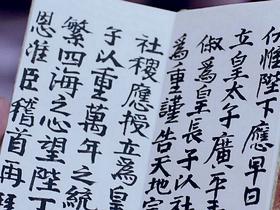 伏惟陛下應早日
立皇太子廣平
俶為皇長子以社
為重謹告天地宗
社稷應授立為皇
子以重萬年之統
繁四海之心望陛
恩准臣稽首再